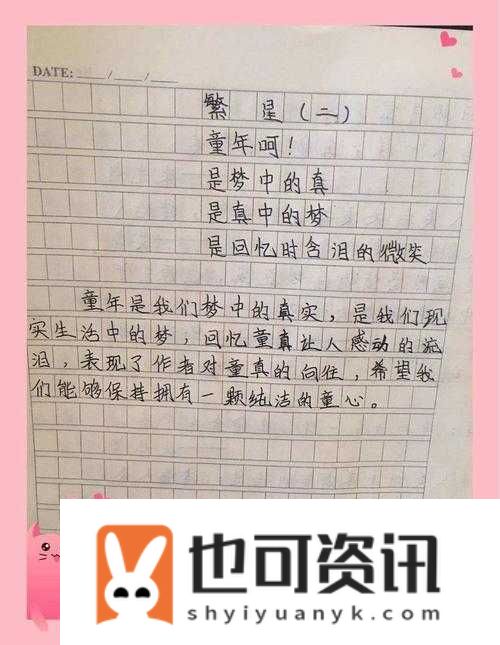 DATE: ___/___/___
繁星（二）
童年呵！
是梦中的真
是真中的梦
是回忆时含泪的微笑
童年是我们梦中的真实，是我们现
实生活中的梦，回忆童真让人感动的流
泪，表现了作者对童真的向往，希望我
们能够保持拥有一颗纯洁的童心。
也可资讯
shyiyuanyk.com